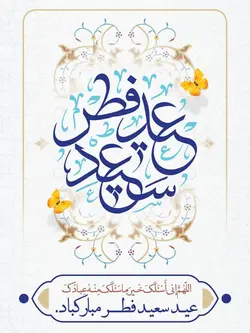 عید فطر
سعید
اللهم إنی أسئلک خیر ما سئلک منه عبادک
عید سعید فطر مبارکباد.